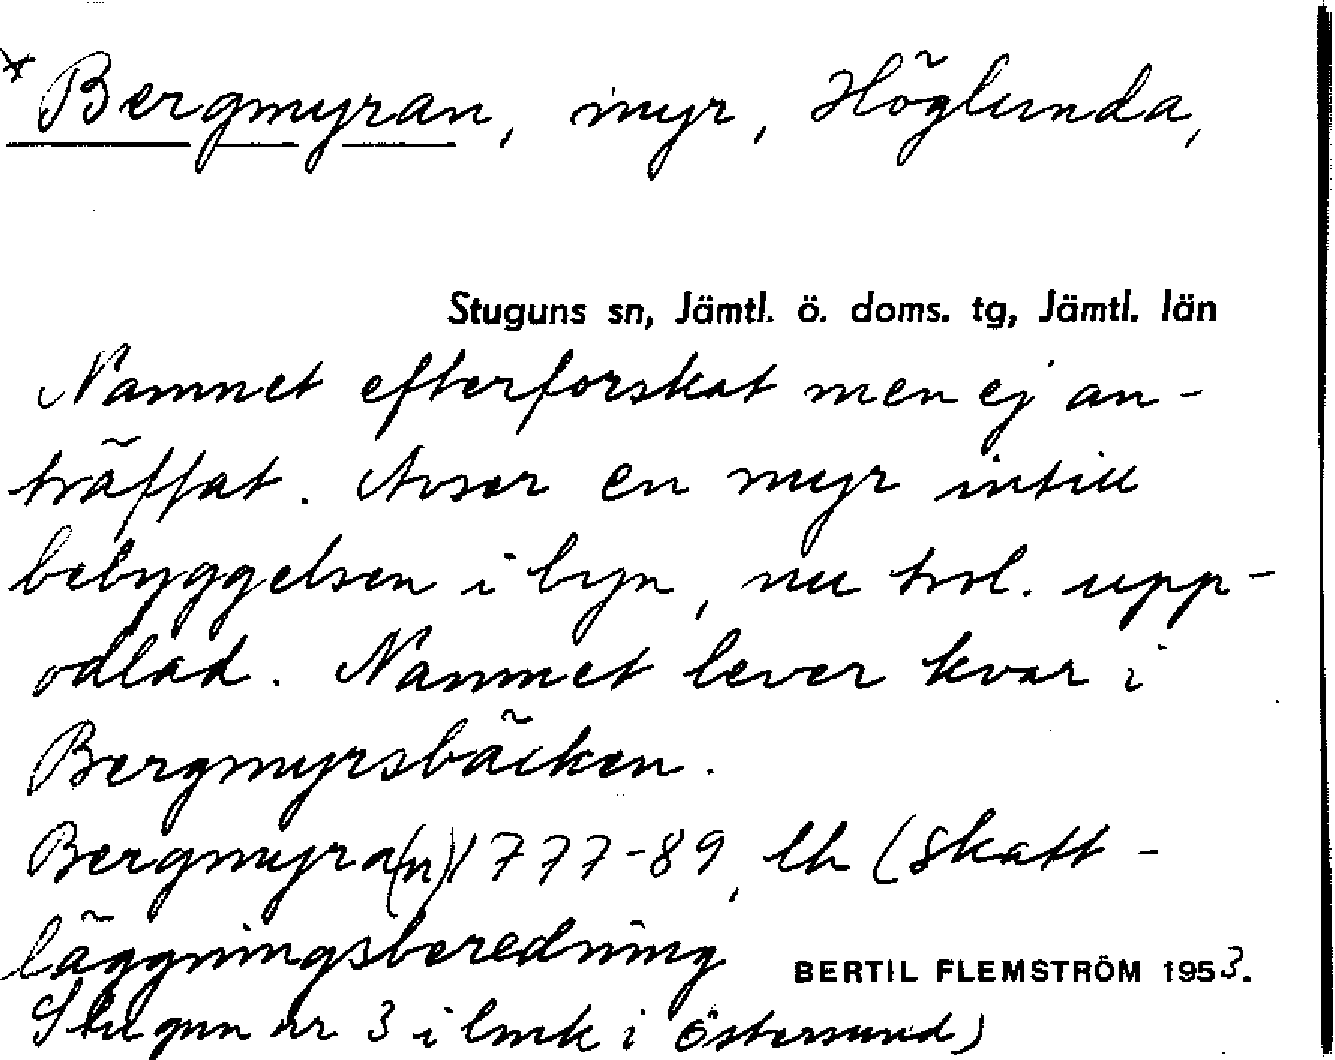 * Bergmyran, myr, Höglunda,
Stuguns sn, Jämtl. ö. doms. tg, Jämtl. län
Namnet efterforskat men ej an-
träffat. Avser en myr intill
bebyggelsen i byn, nu trol. upp-
odlad. Namnet lever kvar i
Bergmyrsbäcken.
Bergmyra(n) 1777-89, lh (skatt-
läggningsberedning
BERTIL FLEMSTRÖM 1953.
Stugun nr 3 i lmk i Östersund)